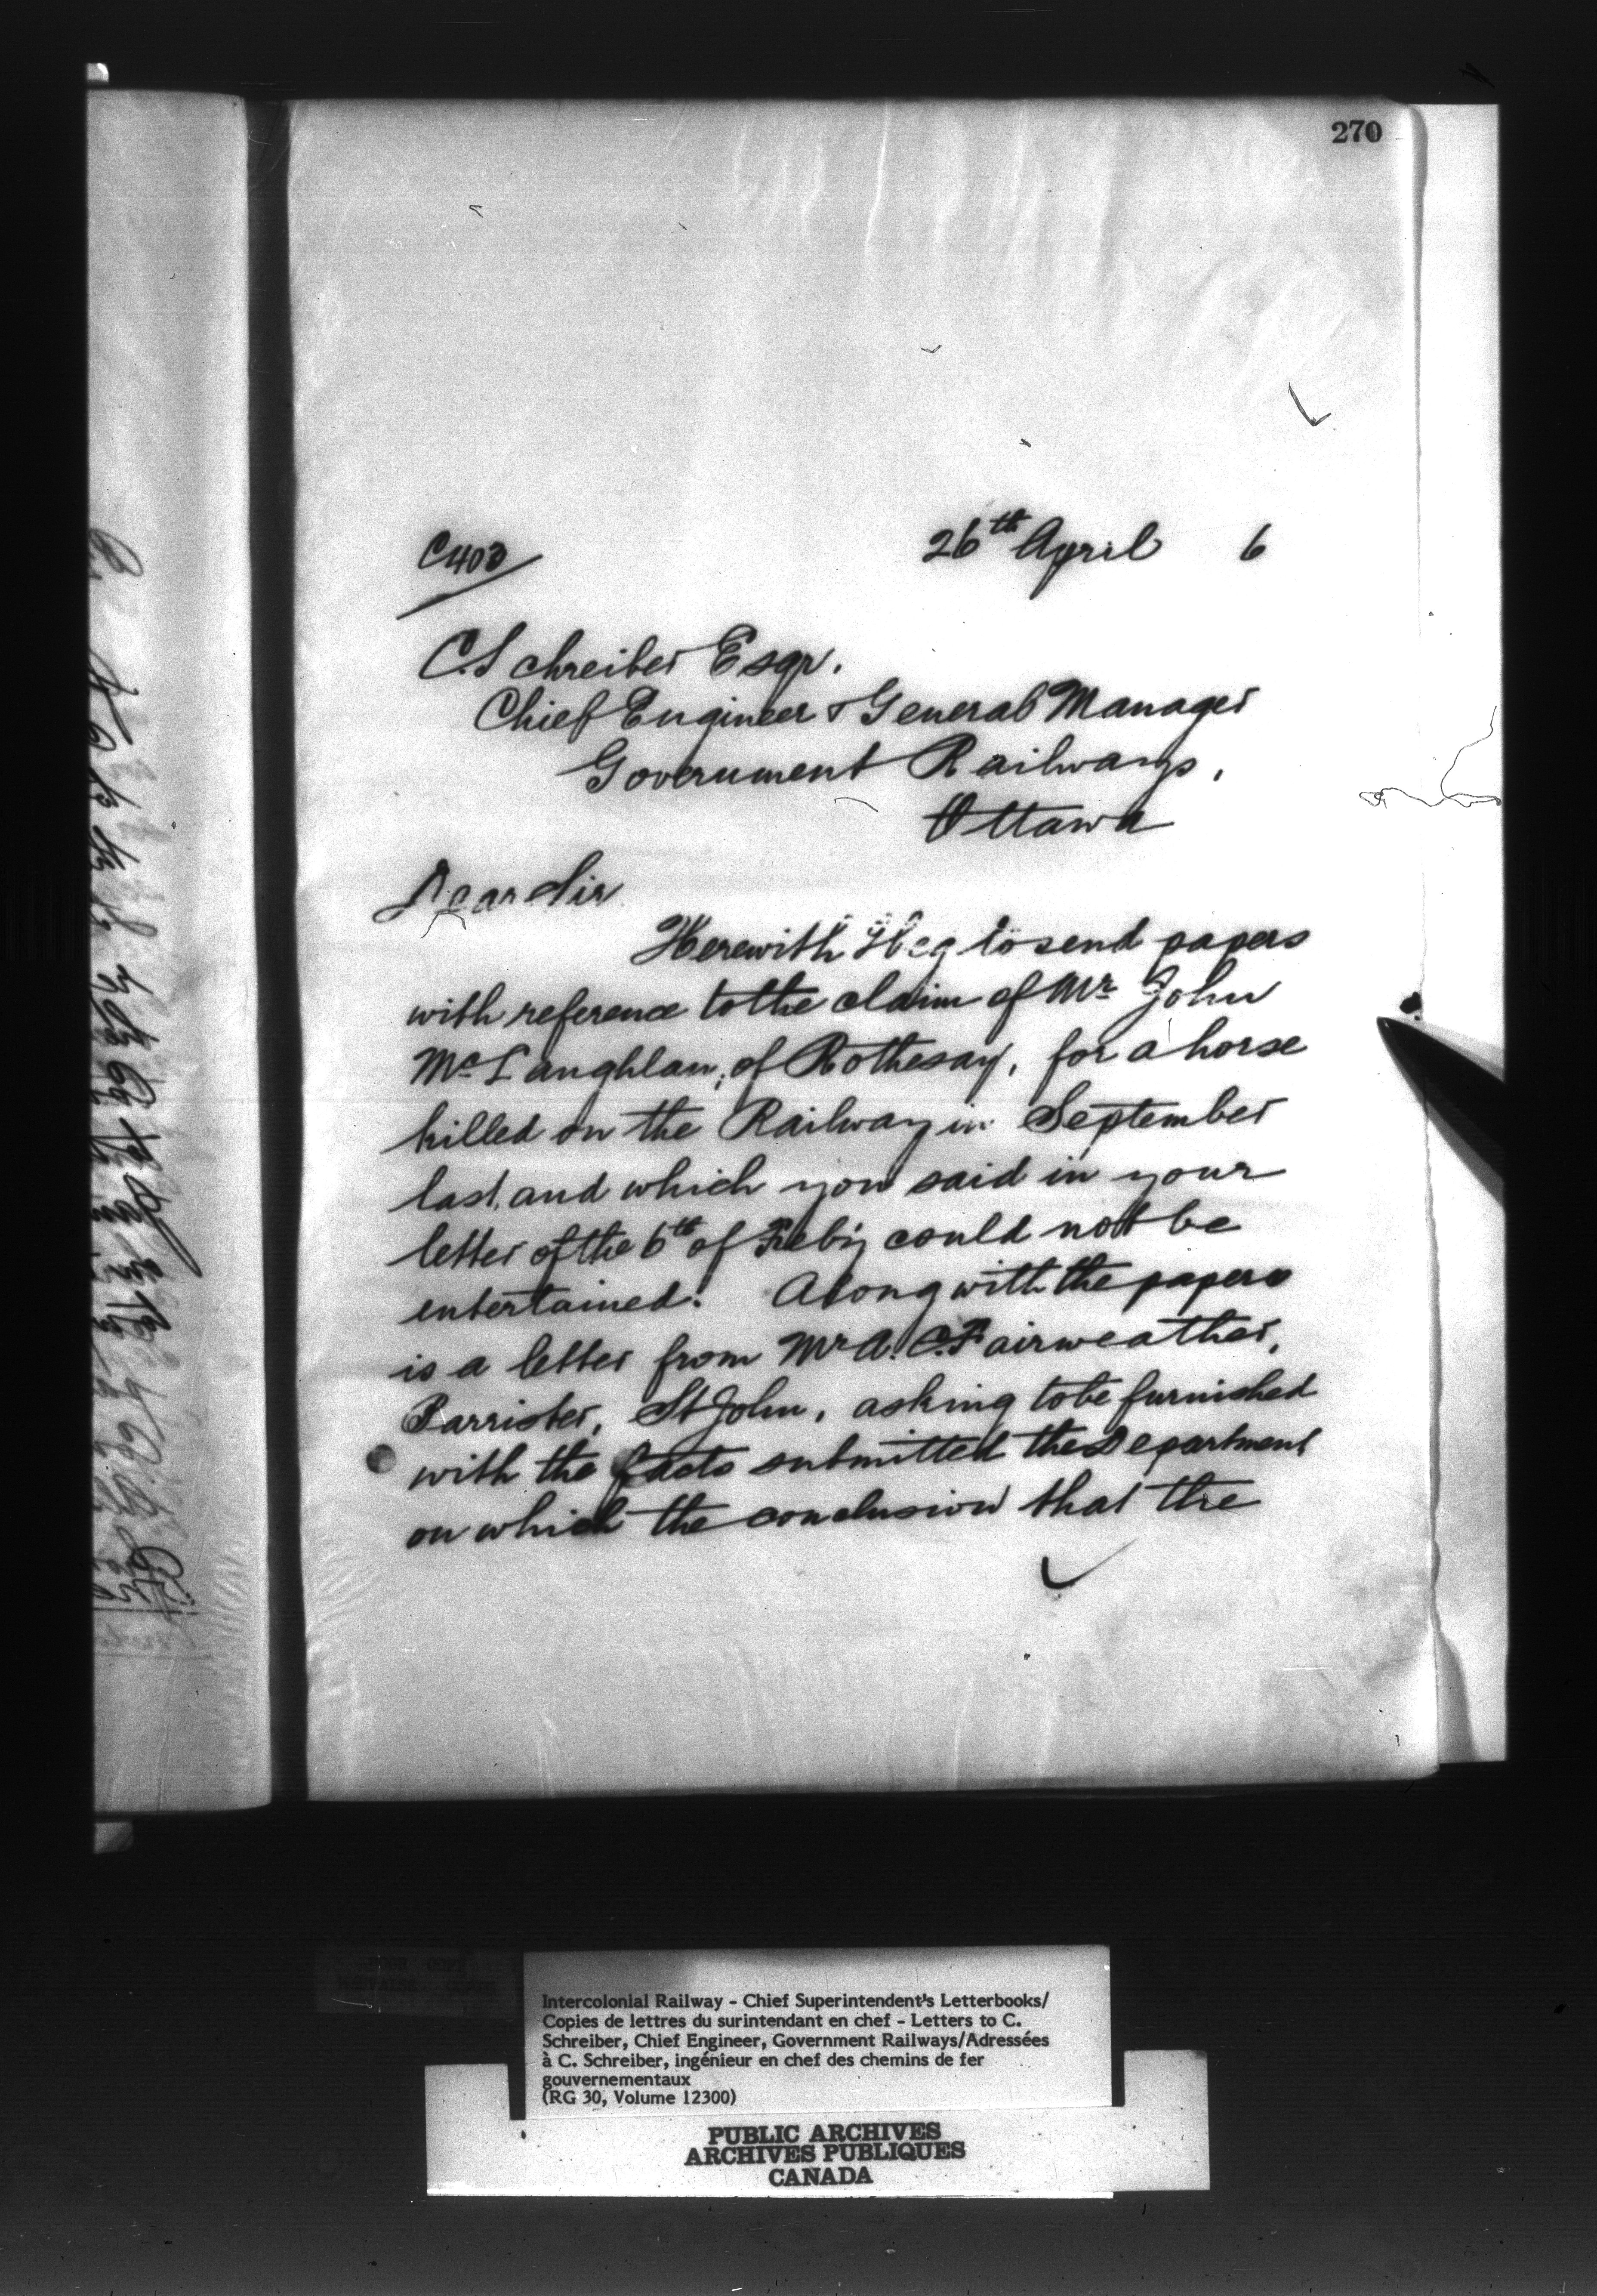 270
C403
26th April 6
C. Schreiber Esqr.
Chief Engineer & General Manager
Government Railways,
Ottawa
Dear Sir
Herewith I beg to send papers
with reference to the claim of Mr John
McLaughlan, of Rothesay, for a horse
killed on the Railway in September
last, and which you said in your
letter of the 6th of Feby could not be
entertained. Along with the papers
is a letter from Mr A. C. Fairweather,
Barrister, St John, asking to be furnished
with the facts submitted the Department
on which the conclusion that the
Intercolonial Railway - Chief Superintendent's Letterbooks/
Copies de lettres du surintendant en chef - Letters to C.
Schreiber, Chief Engineer, Government Railways/Adressées
à C. Schreiber, ingénieur en chef des chemins de fer
gouvernementaux
(RG 30, Volume 12300)
PUBLIC ARCHIVES
ARCHIVES PUBLIQUES
CANADA